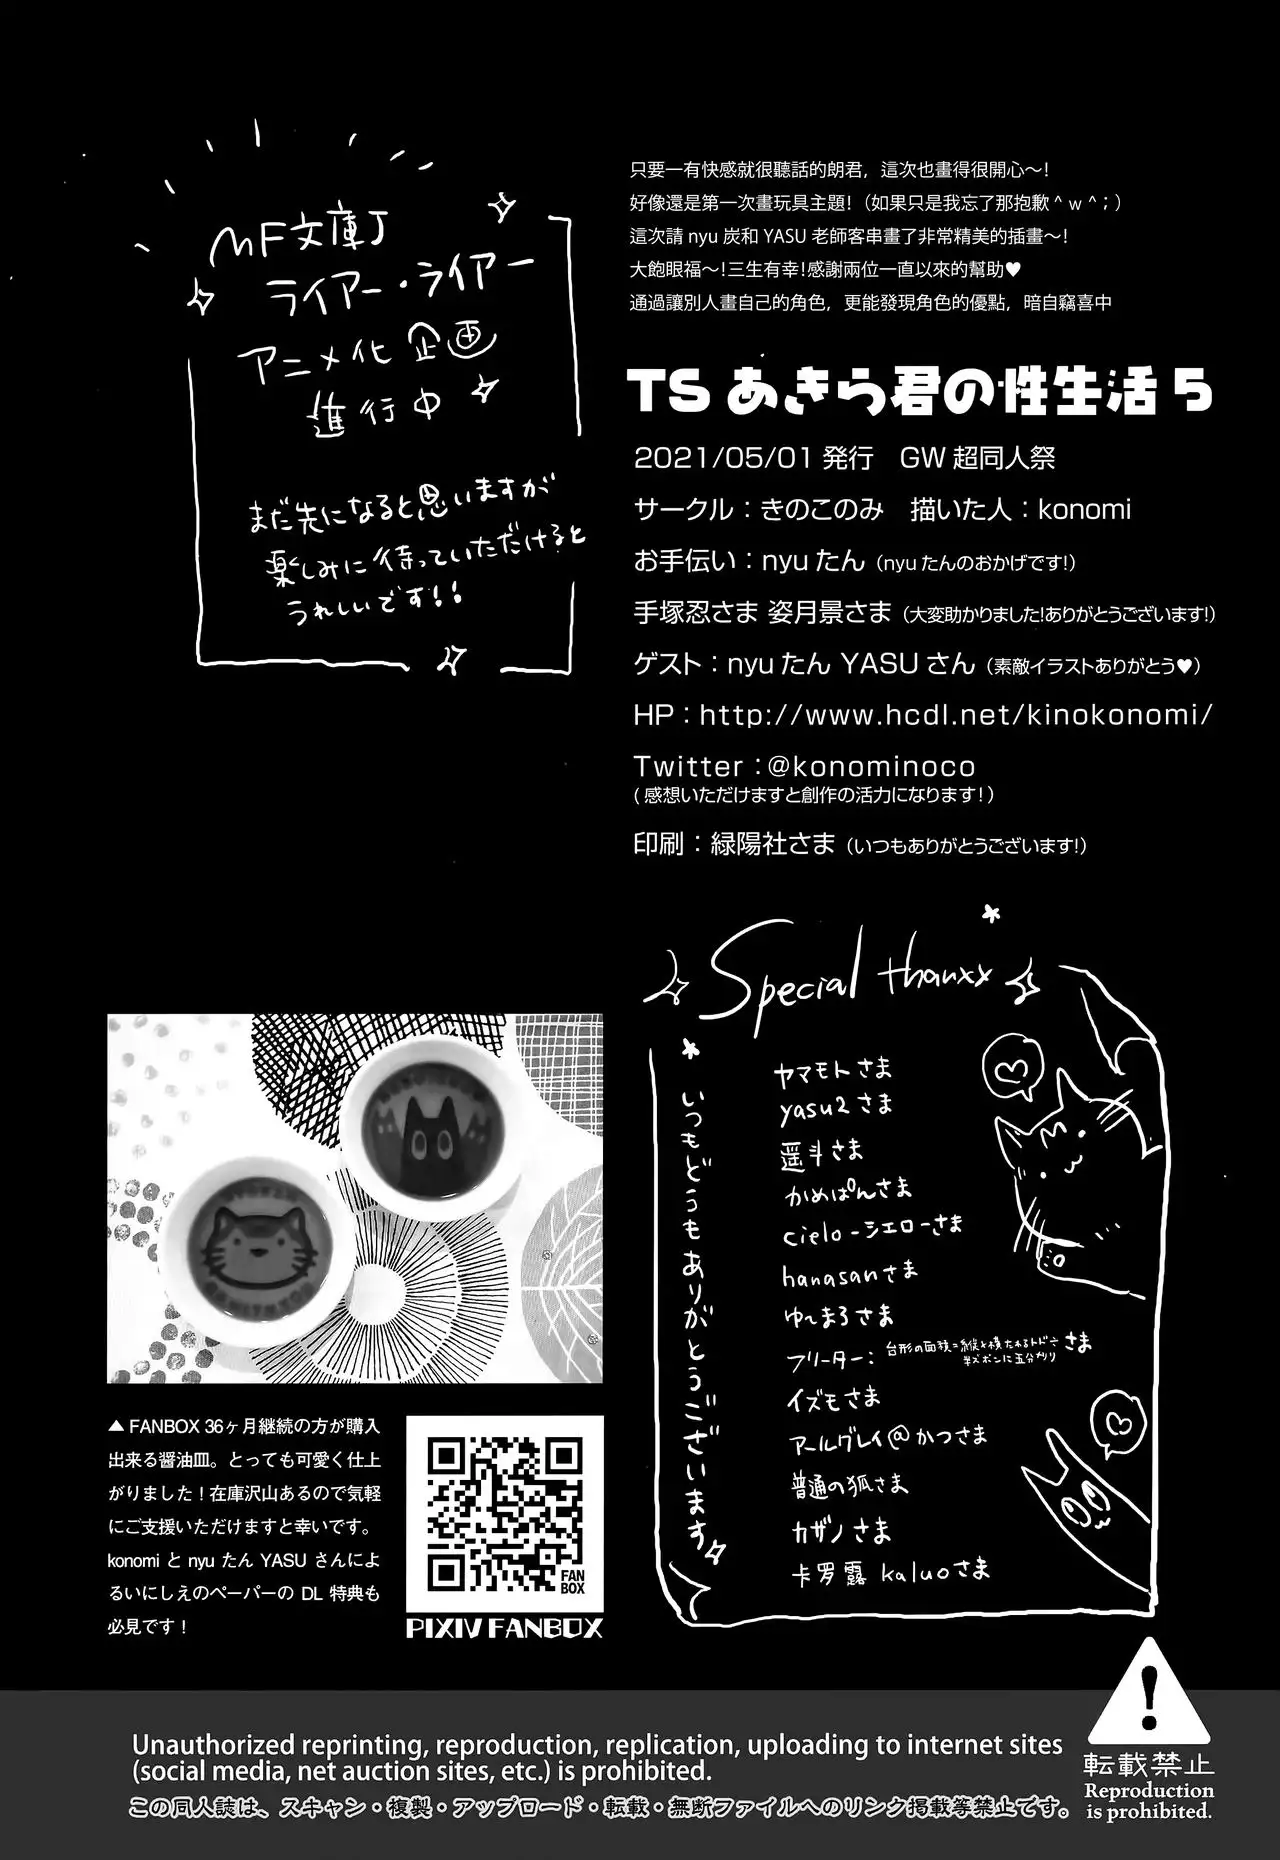 MF文庫J
ライアー・ライアー
アニメ化企画
進行中
まだ先になると思いますが
楽しみに待っていただけると
うれしいです!!
只要一有快感就很聽話的朗君，這次也畫得很開心～!
好像還是第一次畫玩具主題!（如果只是我忘了那抱歉＾ｗ＾;）
這次請 nyu 炭和 YASU 老師客串畫了非常精美的插畫～!
大飽眼福～!三生有幸!感謝兩位一直以來的幫助♥
通過讓別人畫自己的角色，更能發現角色的優點，暗自竊喜中
TSあきら君の性生活5
2021/05/01 発行　GW 超同人祭
サークル：きのこのみ　描いた人：konomi
お手伝い：nyuたん（nyuたんのおかげです!）
手塚忍さま 姿月景さま（大変助かりました!ありがとうございます!）
ゲスト：nyuたん YASUさん（素敵イラストありがとう♥）
HP：http://www.hcdl.net/kinokonomi/
Twitter：@konominoco
(感想いただけますと創作の活力になります!)
印刷：緑陽社さま（いつもありがとうございます!）
Special thanxx
いつもどうもありがとうございます
ヤマモトさま
yasu2さま
遥斗さま
かめぱんさま
cielo-シエローさま
hanasanさま
ゆ～まろさま
フリーター：台形の面積=縦と横たわるトド÷
半ズボンに五分刈りさま
イズモさま
アールグレイ@かつさま
普通の狐さま
カザノさま
卡罗露 kaluoさま
▲FANBOX 36ヶ月継続の方が購入
出来る醤油皿。とっても可愛く仕上
がりました！在庫沢山あるので気軽
にご支援いただけますと幸いです。
konomi と nyu たん YASU さんによ
るいにしえのペーパーの DL 特典も
必見です！
FAN
BOX
PIXIV FANBOX
Unauthorized reprinting, reproduction, replication, uploading to internet sites
(social media, net auction sites, etc.) is prohibited.
この同人誌は、スキャン・複製・アップロード・転載・無断ファイルへのリンク掲載等禁止です。
!
転載禁止
Reproduction
is prohibited.